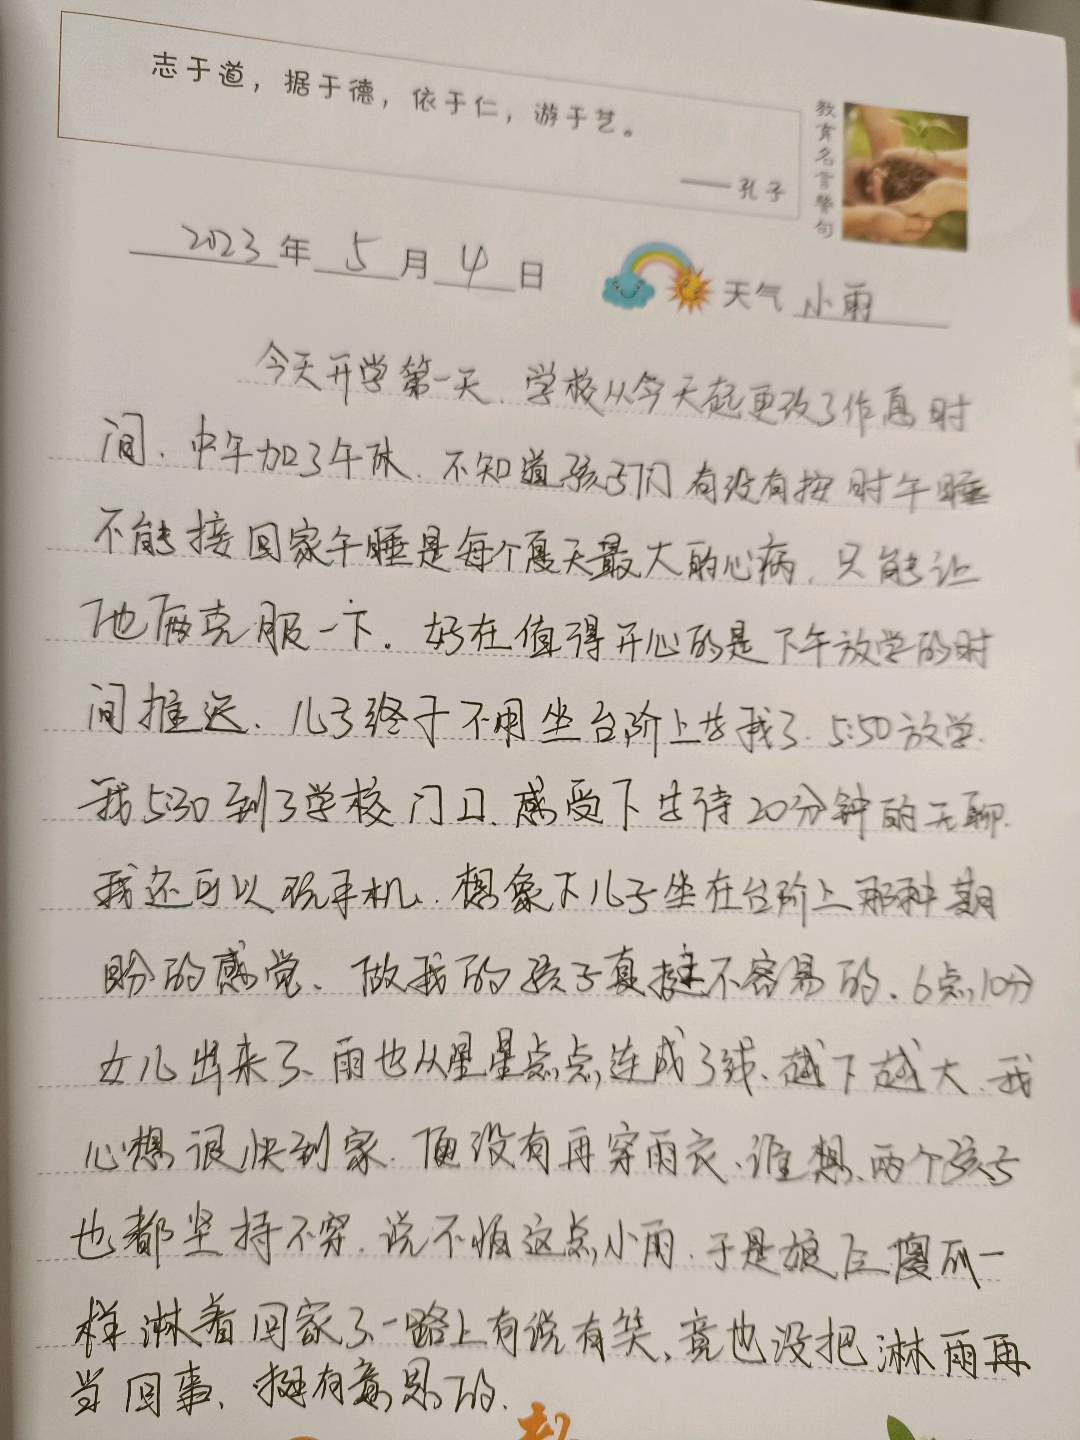 志于道，据于德，依于仁，游于艺。
——孔子
教育名言警句
2023年5月4日 天气 小雨
今天开学第一天、学校从今天起更改了作息时
间、中午加了午休、不知道孩子们有没有按时午睡
不能接回家午睡是每个夏天最大的心病、只能让
他俩克服一下。好在值得开心的是下午放学的时
间推迟、儿子终于不用坐台阶上等我了、5:50放学、
我5:30到了学校门口、感受下等待20分钟的无聊、
我还可以玩手机、想象下儿子坐在台阶上那种期
盼的感觉、做我的孩子真挺不容易的、6点10分
女儿出来了、雨也从星星点点连成了线、越下越大、我
心想很快到家、便没有再穿雨衣、谁想、两个孩子
也都坚持不穿、说不怕这点小雨、于是娘仨傻瓜一
样淋着回家了一路上有说有笑、竟也没把淋雨再
当回事、挺有意思的、